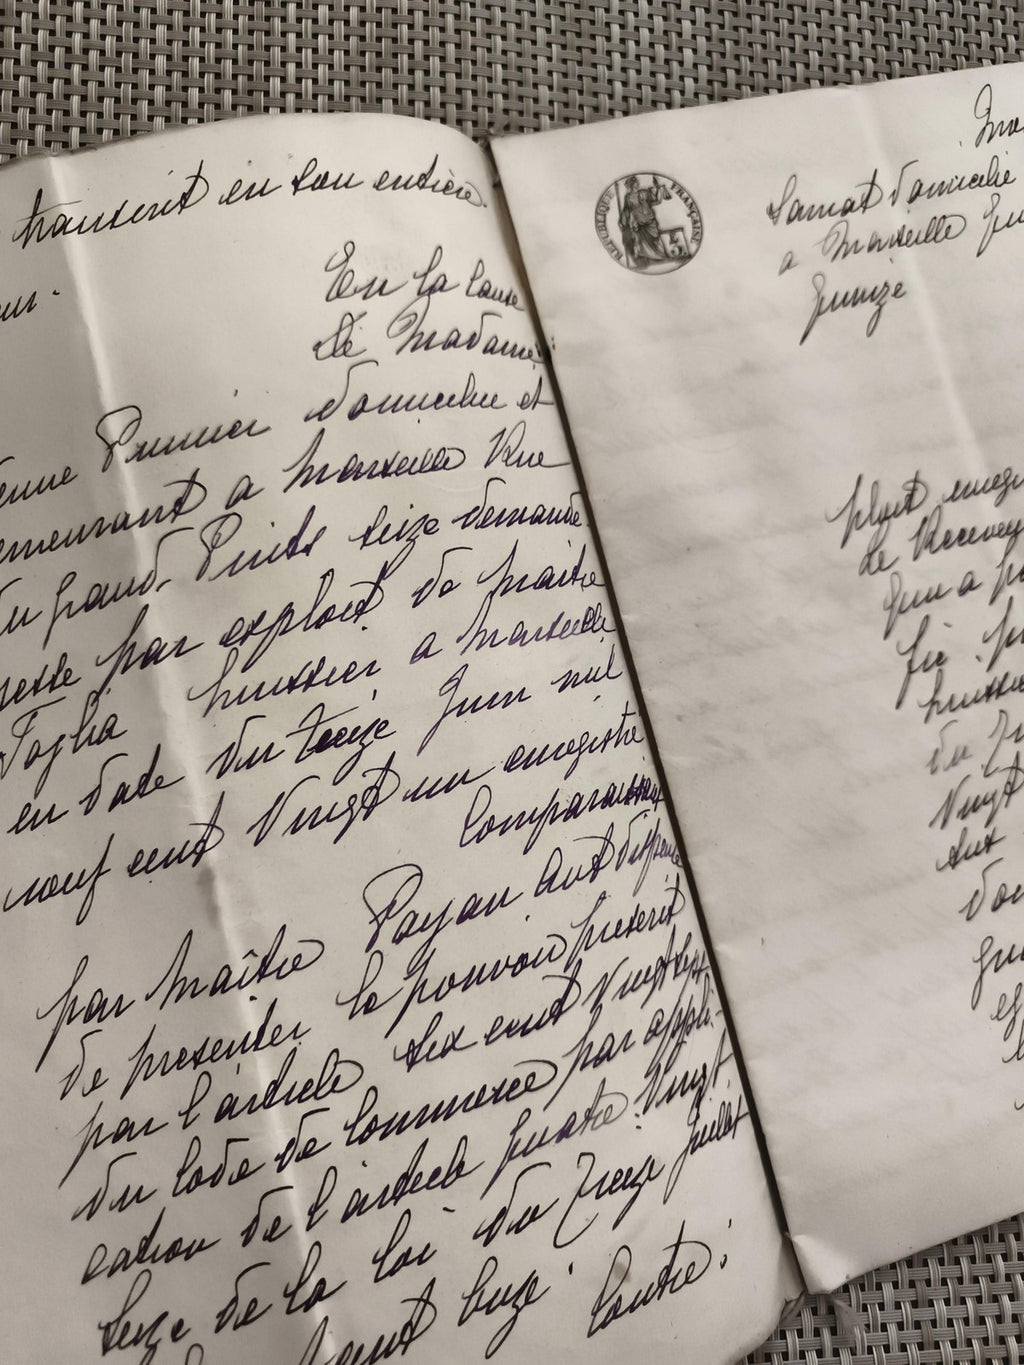 transcrit en son entier
En la Cause
De Madame
Prunier domiciliée et
demeurant a Marseille Rue
du grand Puits seize demande-
resse par exploit de Maitre
Foglia huissier a Marseille
en date du treize Juin mil
neuf cent vingt un enregistré
Comparaissant
par Maître Payan Avt dispensé
de presenter le pouvoir prescrit
par l'article six cent vingt sept
du Code de Commerce par appli-
cation de l'article quatre-vingt
seize de la loi du Treize Juillet
cent onze Contre :
RÉPUBLIQUE FRANÇAISE
domicilié
a Marseille
quinze
enreg
Le Receveu
vingt